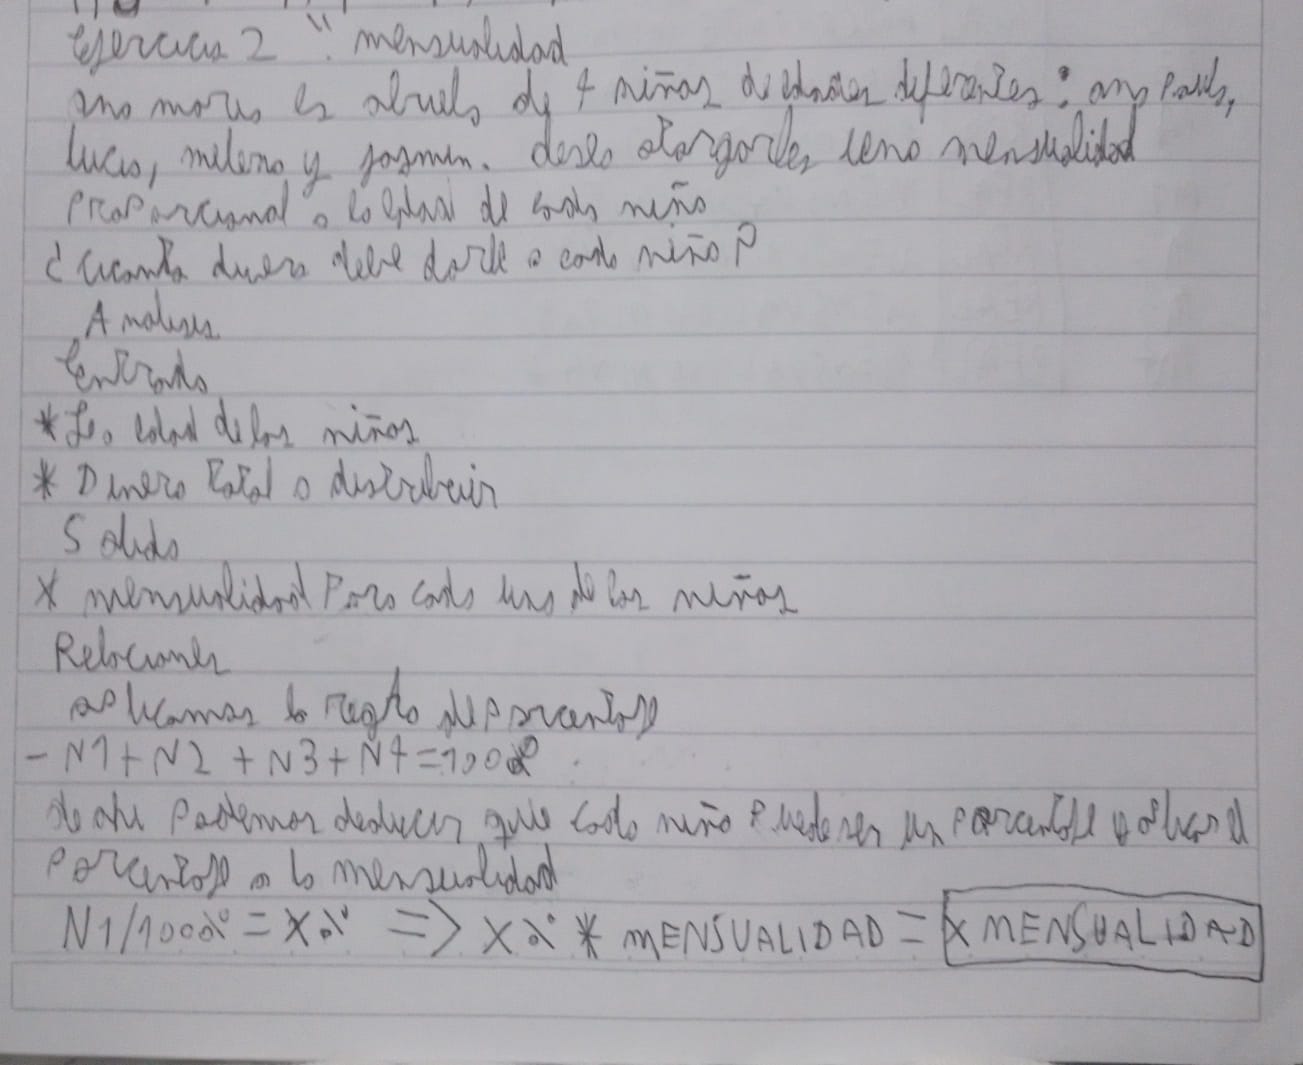 Ejercicio 2 " mensualidad
ana maria es abuela de 4 niñas de edades diferentes: any Paola,
lucia, milena y jasmin. desea otorgarles una mensualidad
proporcional a la edad de cada niña
¿Cuanto dinero debe darle a cada niña?
Analisis
Entrada
* La edad de las niñas
* Dinero total a distribuir
Salida
* mensualidad Para cada una de las niñas
Relaciones
aplicamos la regla de porcentaje
- N1 + N2 + N3 + N4 = 100%
de ahi Podemos deducir que cada niña Puede ser un porcentaje y aplicar el
Porcentaje a la mensualidad
N1/100% = X% => X% * MENSUALIDAD = X MENSUALIDAD